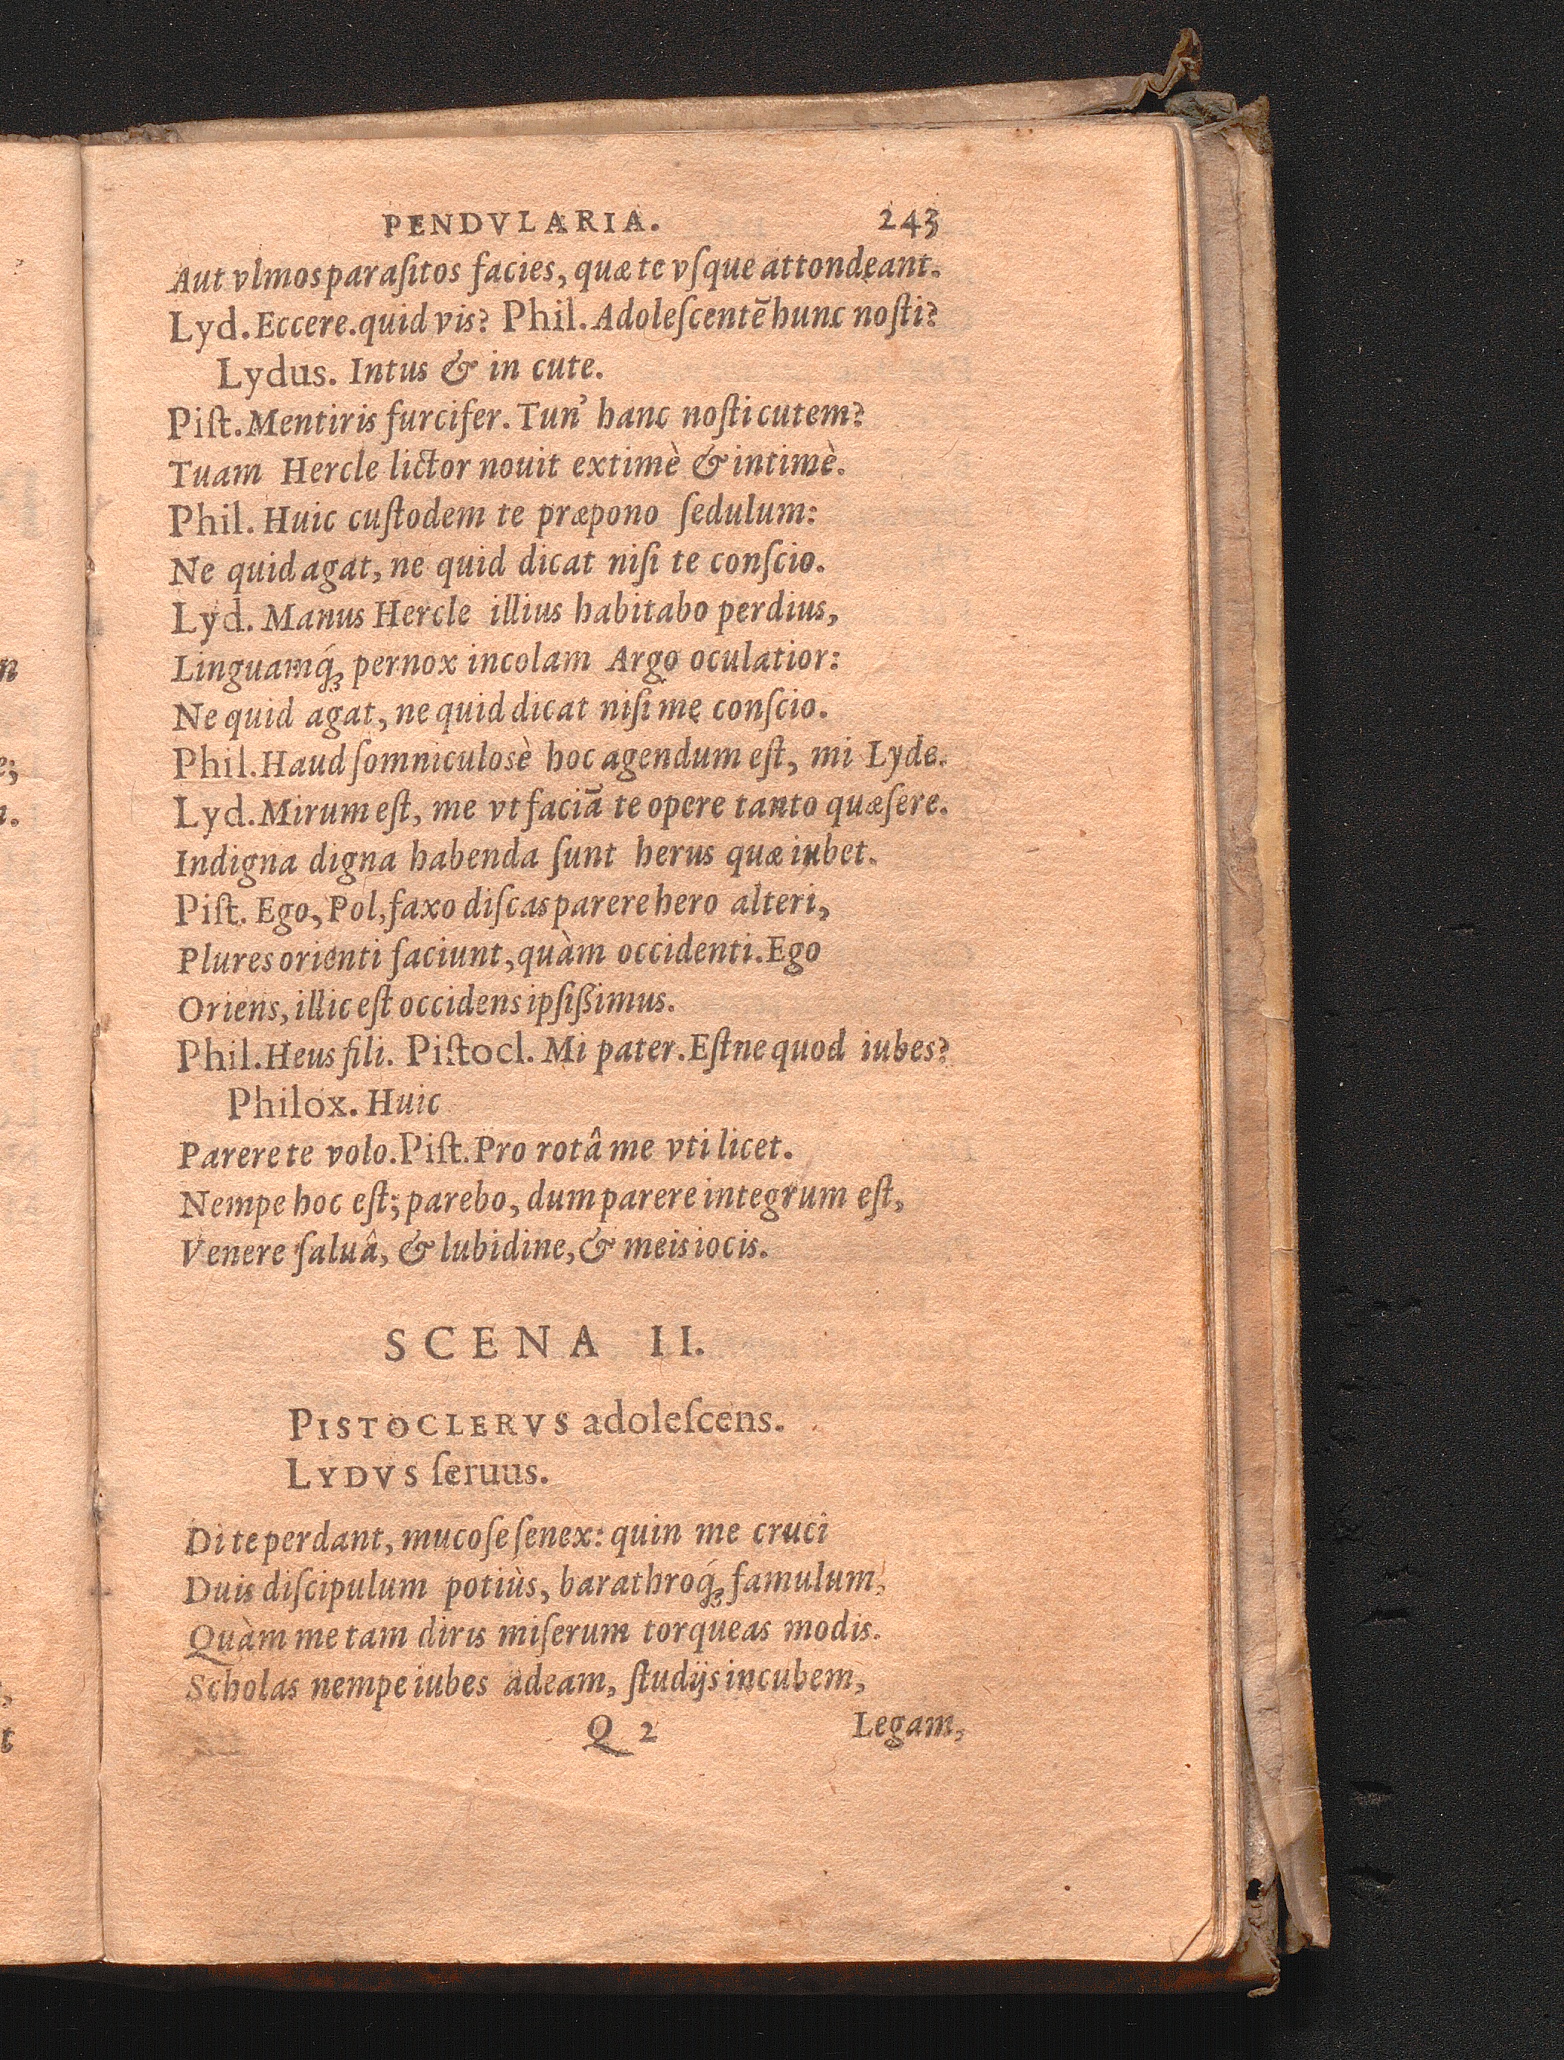 PENDVLARIA. 243
Aut vlmos paraſitos facies, quæ te vſque attondeant.
Lyd. Eccere. quid vis? Phil. Adoleſcentē hunc noſti?
Lydus. Intus & in cute.
Piſt. Mentiris furcifer. Tun' hanc noſti cutem?
Tuam Hercle lictor nouit extimè & intimè.
Phil. Huic cuſtodem te præpono ſedulum:
Ne quid agat, ne quid dicat niſi te conſcio.
Lyd. Manus Hercle illius habitabo perdius,
Linguamq́ꝫ pernox incolam Argo oculatior:
Ne quid agat, ne quid dicat niſi me conſcio.
Phil. Haud ſomniculosè hoc agendum eſt, mi Lyde.
Lyd. Mirum eſt, me vt faciā te opere tanto quæſere.
Indigna digna habenda ſunt herus quæ iubet.
Piſt. Ego, Pol, faxo diſcas parere hero alteri,
Plures orienti faciunt, quàm occidenti. Ego
Oriens, illic eſt occidens ipſiſſimus.
Phil. Heus fili. Piſtocl. Mi pater. Eſtne quod iubes?
Philox. Huic
Parere te volo. Piſt. Pro rotâ me vti licet.
Nempe hoc eſt; parebo, dum parere integrum eſt,
Venere ſaluâ, & lubidine, & meis iocis.
SCENA II.
PISTOCLERVS adoleſcens.
LYDVS ſeruus.
Di te perdant, mucoſe ſenex: quin me cruci
Duis diſcipulum potiùs, barathroq́ꝫ famulum,
Quàm me tam diris miſerum torqueas modis.
Scholas nempe iubes adeam, ſtudijs incubem,
Q 2 Legam,